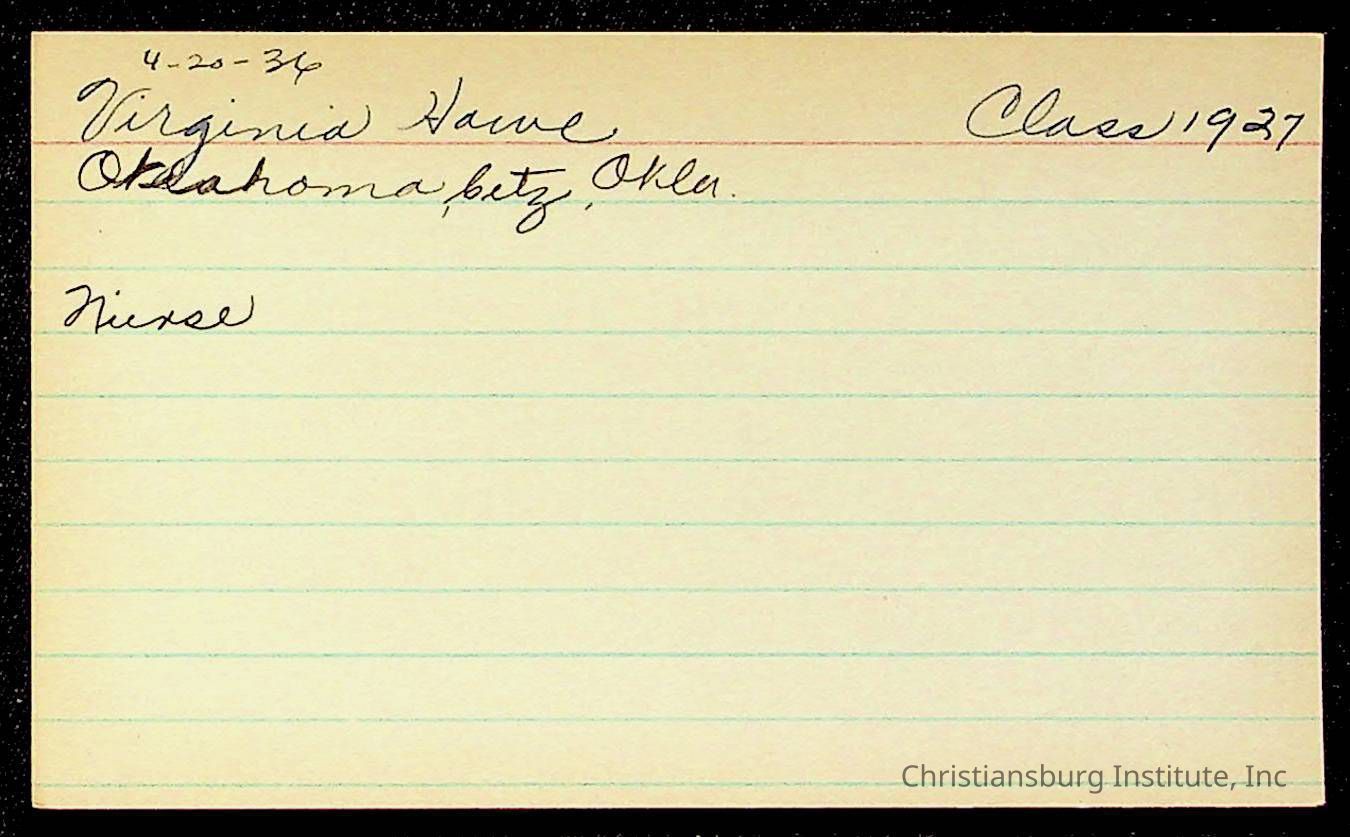 4-20-36
Virginia Howe Class 1927
Oklahoma, City, Okla.
Nurse
Christiansburg Institute, Inc